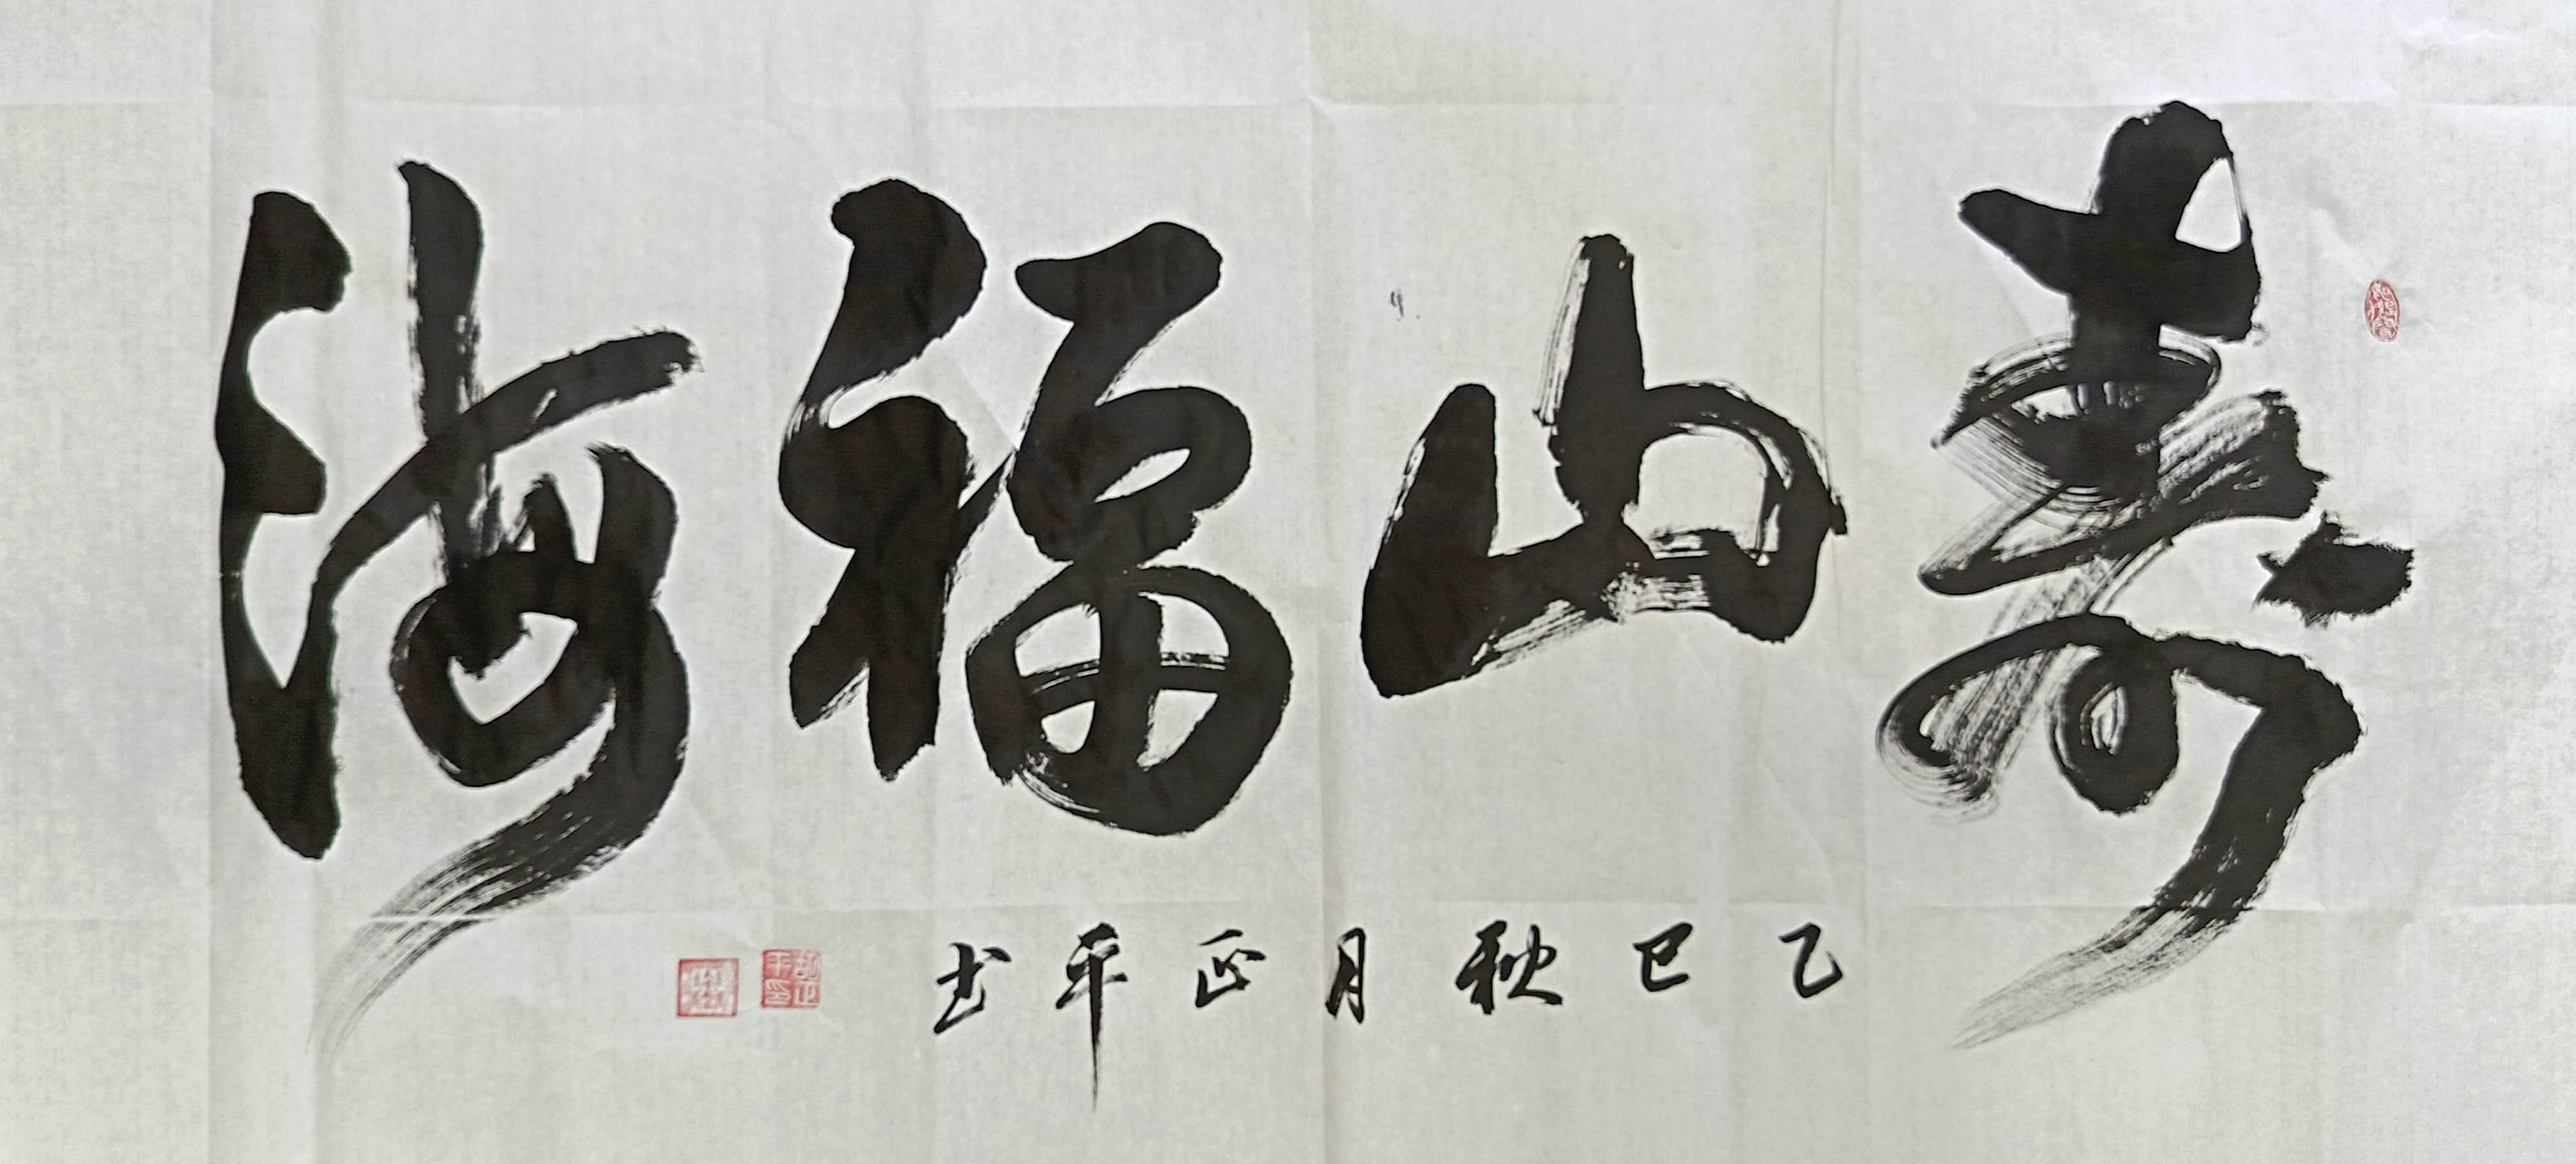 壽山福海
乙巳秋月正平书